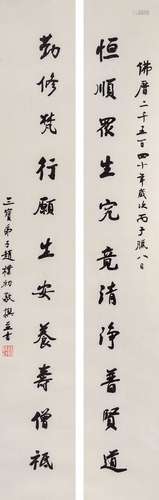 佛曆二千五百四十年歲次丙子臘八日
恒順眾生究竟清淨普賢道
勤修梵行願生安養壽僧祇
三寶弟子趙樸初敬撰並書